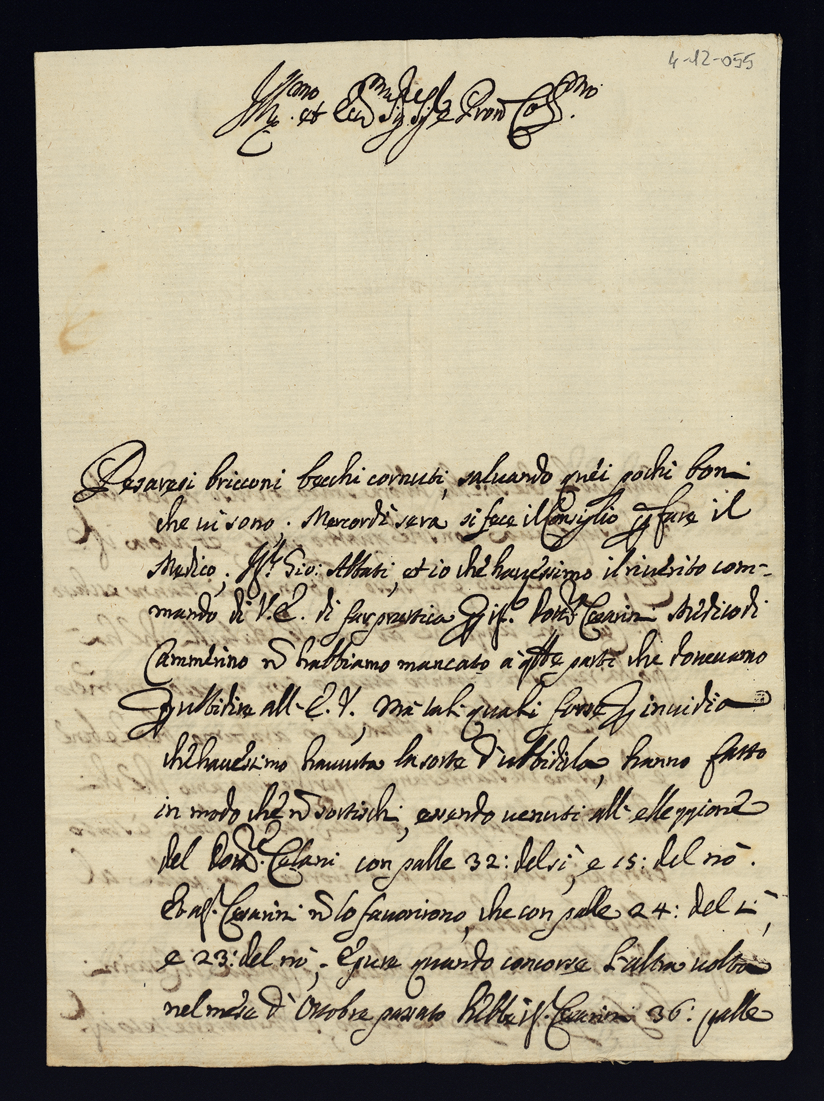 4-12-055
Ill.mo et Ecc.mo Sig. Sig.re e Pron Col.mo
Pesaresi bricconi becchi cornuti, saluando quei pochi boni
che ui sono. Mercordi sera si fece il Consiglio p fare il
Medico; Gio: Abbati, et io che hauessimo il riuerito com-
mando di V.E. di far prattica p il S.r Dott.re Cesarini Medico di
Cammerino nõ habbiamo mancato a qlle parti che doueuamo
p ubbidire all'E.V., mà tali quali forse p inuidia
che hauessimo hauuta la sorte d'ubbidirla, hanno fatto
in modo che nõ sortischi, essendo uenuti all'elleggione
del Dott.re Celani con palle 32: del sì, e 15: del nò.
Et al S.r Cesarini nõ lo fauorirono, che con palle 24: del sì,
e 23: del nò, Epure quando concorse l'altra uolta
nel mese d'Ottobre passato hebbe il S.r Cesarini 36: palle